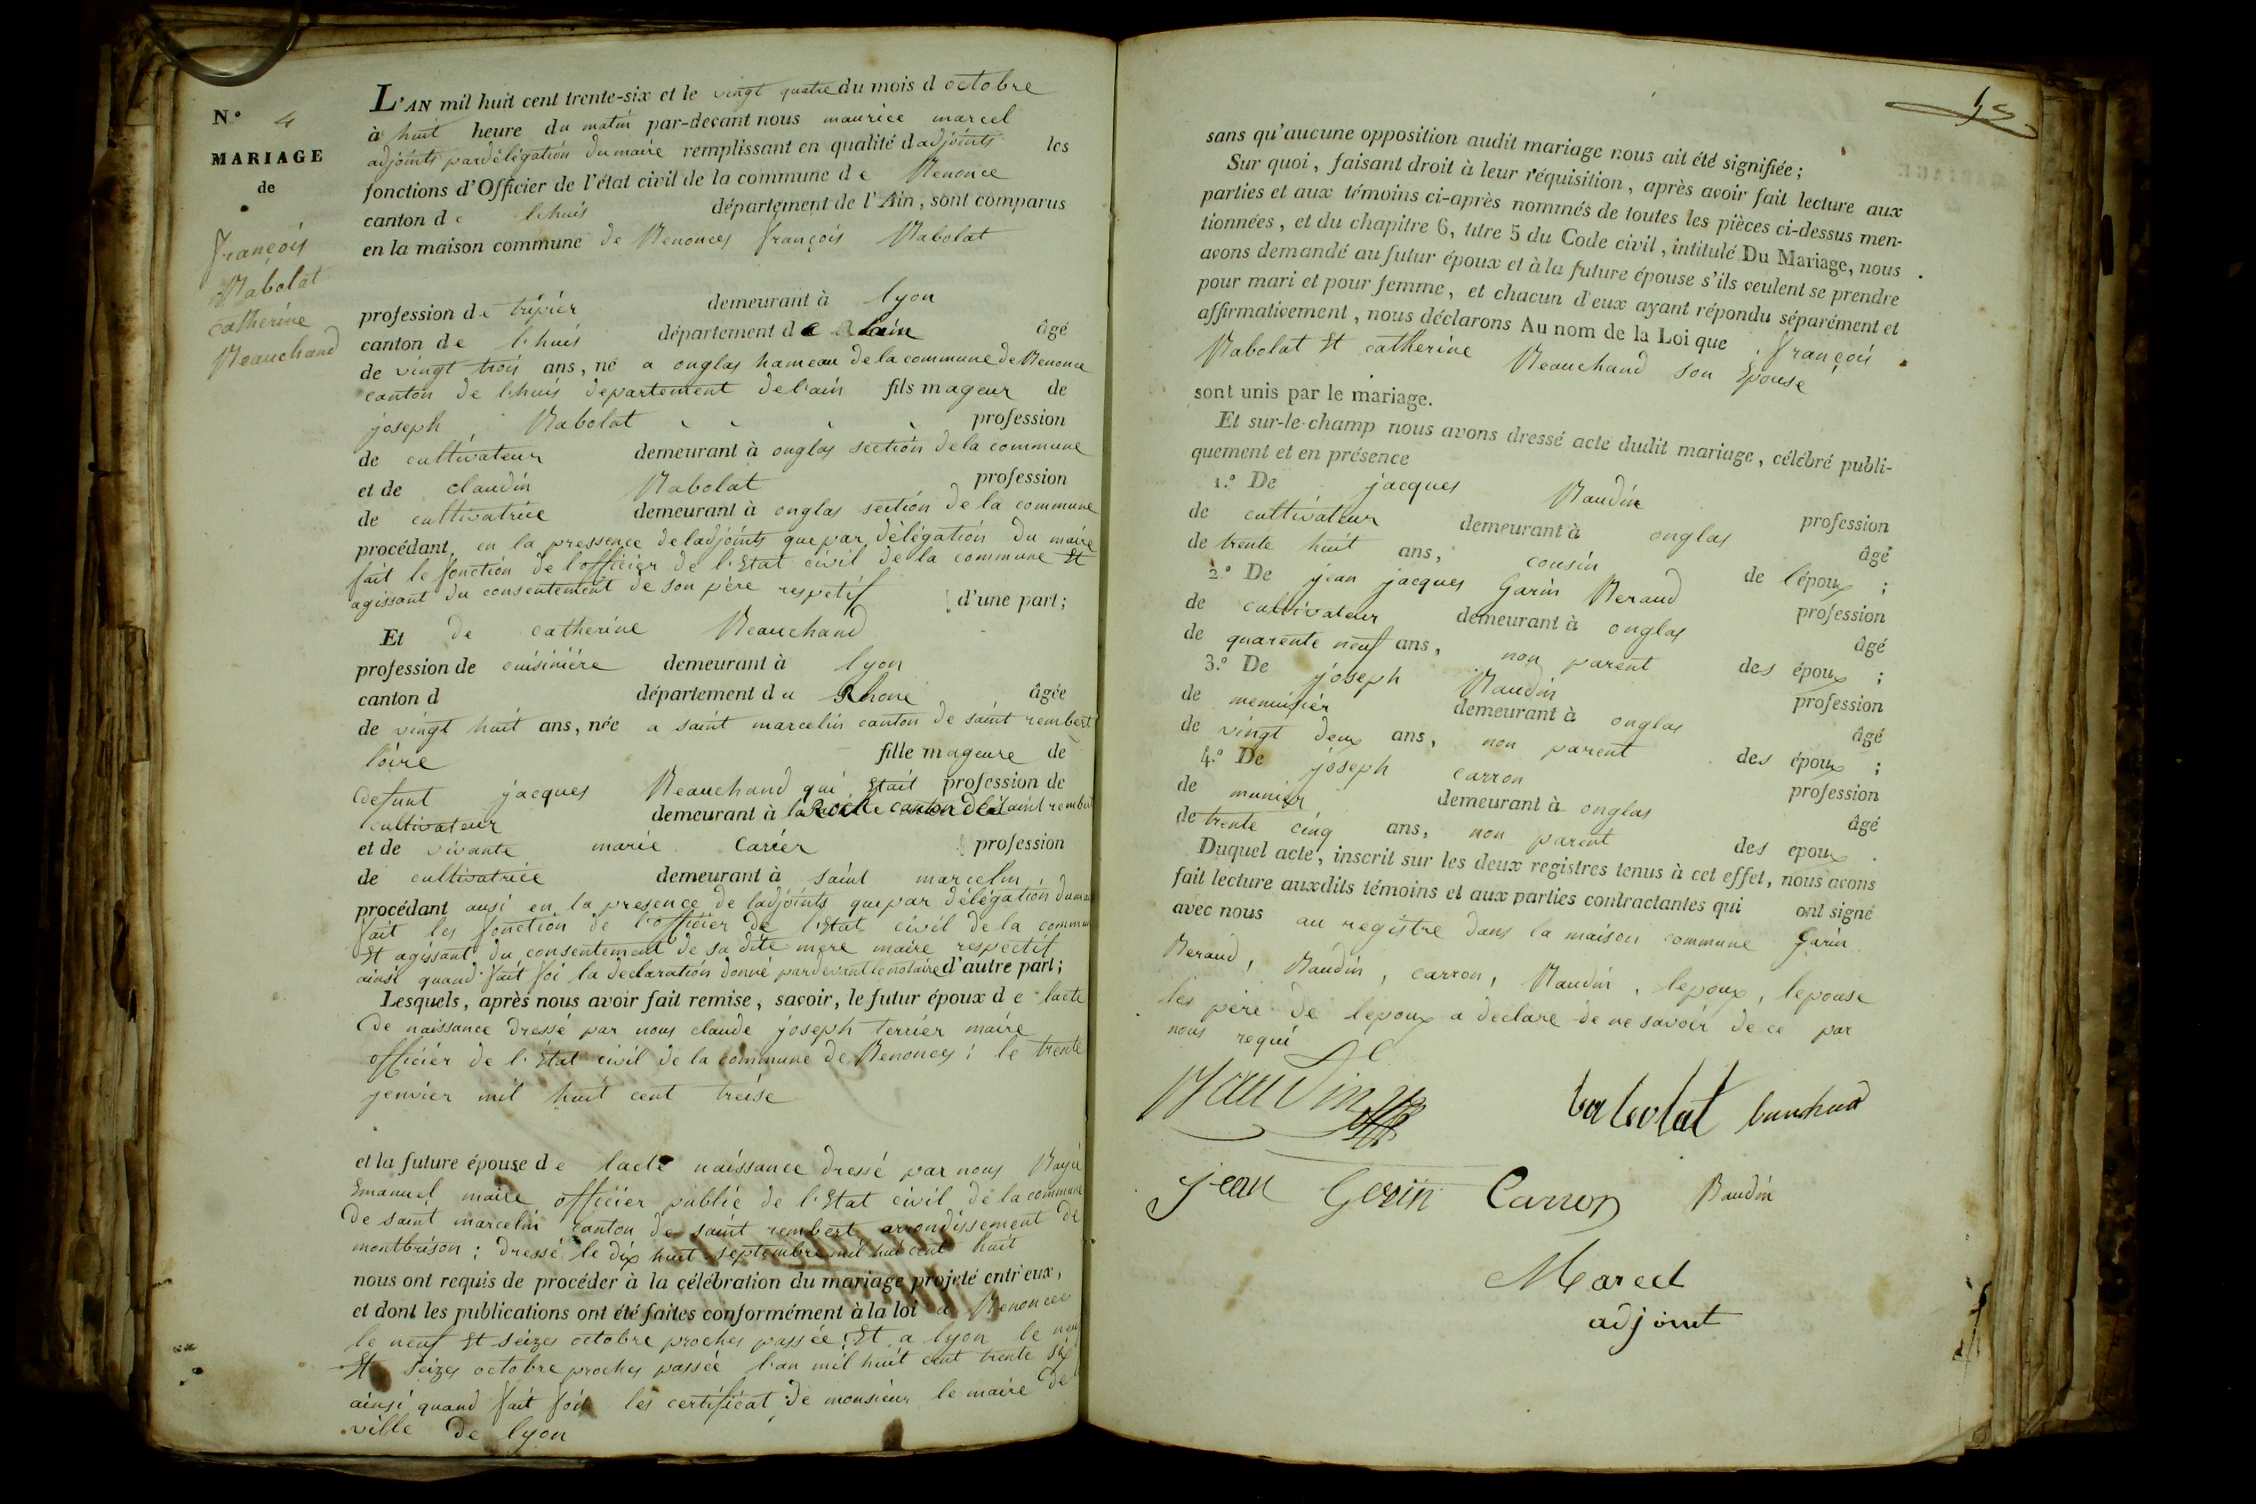 N.° 4
MARIAGE
de
françois
Rabolat
catherine
Beauchand
L'AN mil huit cent trente-six et le vingt quatre du mois d octobre
à huit heure du matin par-devant nous maurice marcel
adjoints par délégation du maire remplissant en qualité d adjoints les
fonctions d'Officier de l'état civil de la commune de Benonce
canton de lhuis département de l'Ain, sont comparus
en la maison commune de Benonces françois Rabolat
profession de tripier demeurant à lyon
canton de lhuis département de lain âgé
de vingt trois ans, né a onglas hameau de la commune de Benonce
canton de lhuis departement de lain fils mageur de
joseph Rabolat profession
de cultivateur demeurant à onglas section de la commune
et de claudin Rabolat profession
de cultivatrice demeurant à onglas section de la commune
procédant en la pressence de ladjoints que par délégation du maire
fait le fonction de lofficier de l'Etat civil de la commune Et
agissant du consentement de son père respetif d'une part;
Et de catherine Beauchand
profession de cuisinière demeurant à lyon
canton d département du Rhone âgée
de vingt huit ans, née a saint marcelin canton de saint rembert
loire fille mageure de
defunt jacques Beauchand qui Etait profession de
cultivateur demeurant à canton de saint rembert
et de vivante marie carier profession
de cultivatrice demeurant à saint marcelin
procédant ausi en la presence de ladjoints que par délégation du maire
fait les fonction de l'officier de l'Etat civil de la commune
Et agissant du consentement de sa dite mere maire respectif
ainsi quand fait foi la declaration donné pardevant le notaire d'autre part;
Lesquels, après nous avoir fait remise, savoir, le futur époux de lacte
de naissance dressé par nous claude joseph terrier maire
officier de l'Etat civil de la commune de Benonces; le trente
jenvier mil huit cent treise
et la future épouse de lacte naissance dressé par nous
Emanuel maire officier public de l'Etat civil de la commune
de saint marcelin canton de saint rembert arrondissement de
montbrison; dressé le dix huit septembre mil huit cent huit
nous ont requis de procéder à la célébration du mariage projeté entr'eux,
et dont les publications ont été faites conformément à la loi a Benonces
le neuf Et seizes octobre proches passée; Et a lyon le neuf
Et seizes octobre proches passée l'an mil huit cent trente six
ainsi quand fait foit les certificat de monsieur le maire de
ville de lyon
sans qu'aucune opposition audit mariage nous ait été signifiée;
Sur quoi, faisant droit à leur réquisition, après avoir fait lecture aux
parties et aux témoins ci-après nommés de toutes les pièces ci-dessus men-
tionnées, et du chapitre 6, titre 5 du Code civil, intitulé Du Mariage, nous
avons demandé au futur époux et à la future épouse s'ils veulent se prendre
pour mari et pour femme, et chacun d'eux ayant répondu séparément et
affirmativement, nous déclarons Au nom de la Loi que françois
Rabolat Et catherine Beauchand son Epouse
sont unis par le mariage.
Et sur-le-champ nous avons dressé acte dudit mariage, célébré publi-
quement et en présence
1.° De jacques Baudin profession
de cultivateur demeurant à onglas âgé
de trente huit ans, cousin de l'époux;
2.° De jean jacques Garin Beraud profession
de cultivateur demeurant à onglas âgé
de quarente neuf ans, non parent des époux;
3.° De joseph Baudin profession
de menuisier demeurant à onglas âgé
de vingt deux ans, non parent des époux;
4.° De joseph carron profession
de munier demeurant à onglas âgé
de trente cinq ans, non parent des epoux.
Duquel acte, inscrit sur les deux registres tenus à cet effet, nous avons
fait lecture auxdits témoins et aux parties contractantes qui ont signé
avec nous au registre dans la maison commune Garin
Beraud, Baudin, carron, Baudin, lepoux, lepouse
les père de lepoux a déclaré de ne savoir de ce par
nous requi
Baudin Rabolat
jean Gerin Carron Baudin
Marcel
adjoint